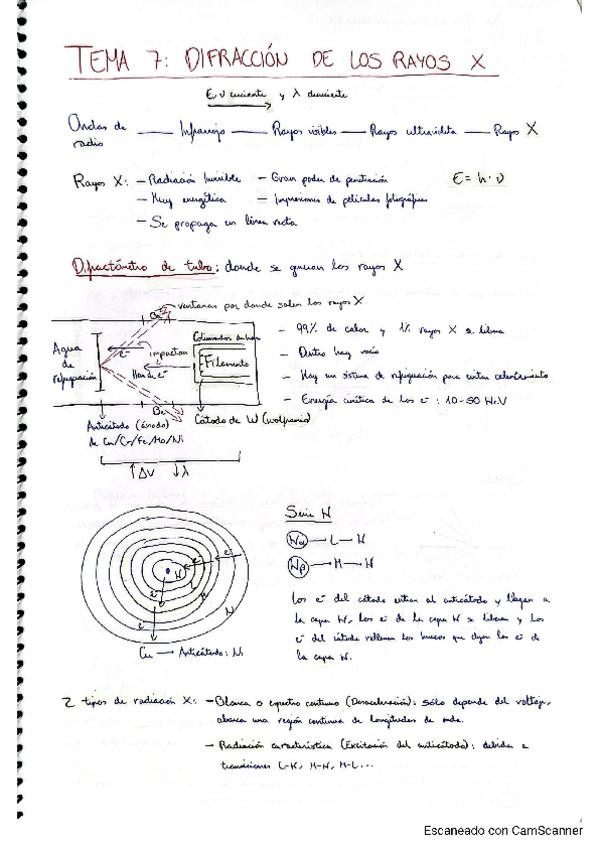 TEMA 7: DIFRACCIÓN DE LOS RAYOS X
E, ν creciente y λ decreciente
Ondas de radio — Infrarrojo — Rayos visibles — Rayos ultravioleta — Rayos X
Rayos X: - Radiación Invisible - Gran poder de penetración E = h·ν
- Muy energética - Impresiones de películas fotográficas
- Se propaga en línea recta
Difractómetro de tubo: donde se generan los rayos X
ventanas por donde salen los rayos X
Be
Agua de refrigeración
e⁻
impactan
Haz de e⁻
Filamento
Be
Anticátodo (ánodo) de Cu/Cr/Fe/Mo/Ni
Cátodo de W (wolframio)
↑ΔV ↓λ
- 99% de calor y 1% rayos X se libera
- Dentro hay vacío
- Hay un sistema de refrigeración para evitar calentamiento
- Energía cinética de los e⁻: 10-50 KeV
Serie K
Kα — L — K
Kβ — M — K
K
L
M
N
e⁻
e⁻
Cu — Anticátodo: Ni
Los e⁻ del cátodo entran al anticátodo y llegan a
la capa K, los e⁻ de la capa K se liberan y los
e⁻ del cátodo rellenan los huecos que dejan los e⁻ de
la capa K.
2 tipos de radiación X: - Blanca o espectro continuo (Desaceleración): sólo depende del voltaje,
abarca una región continua de longitudes de onda.
- Radiación característica (Excitación del anticátodo): debida a
transiciones L-K, M-K, M-L...
Escaneado con CamScanner